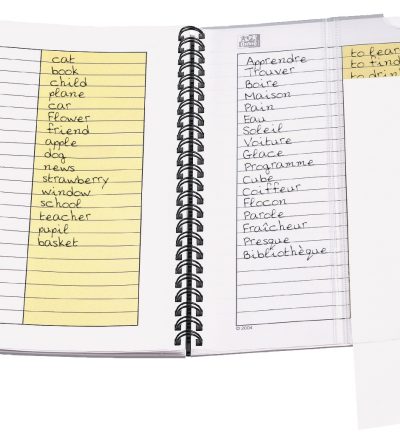 cat
book
child
plane
car
Flower
friend
apple
dog
news
strawberry
window
school
teacher
pupil
basket
Apprendre
Trouver
Boire
Maison
Pain
Eau
Soleil
Voiture
Glace
Programme
Cube
Coiffeur
Flocon
Parole
Fraîcheur
Presque
Bibliothèque
to lear
to find
to drin
© 2004